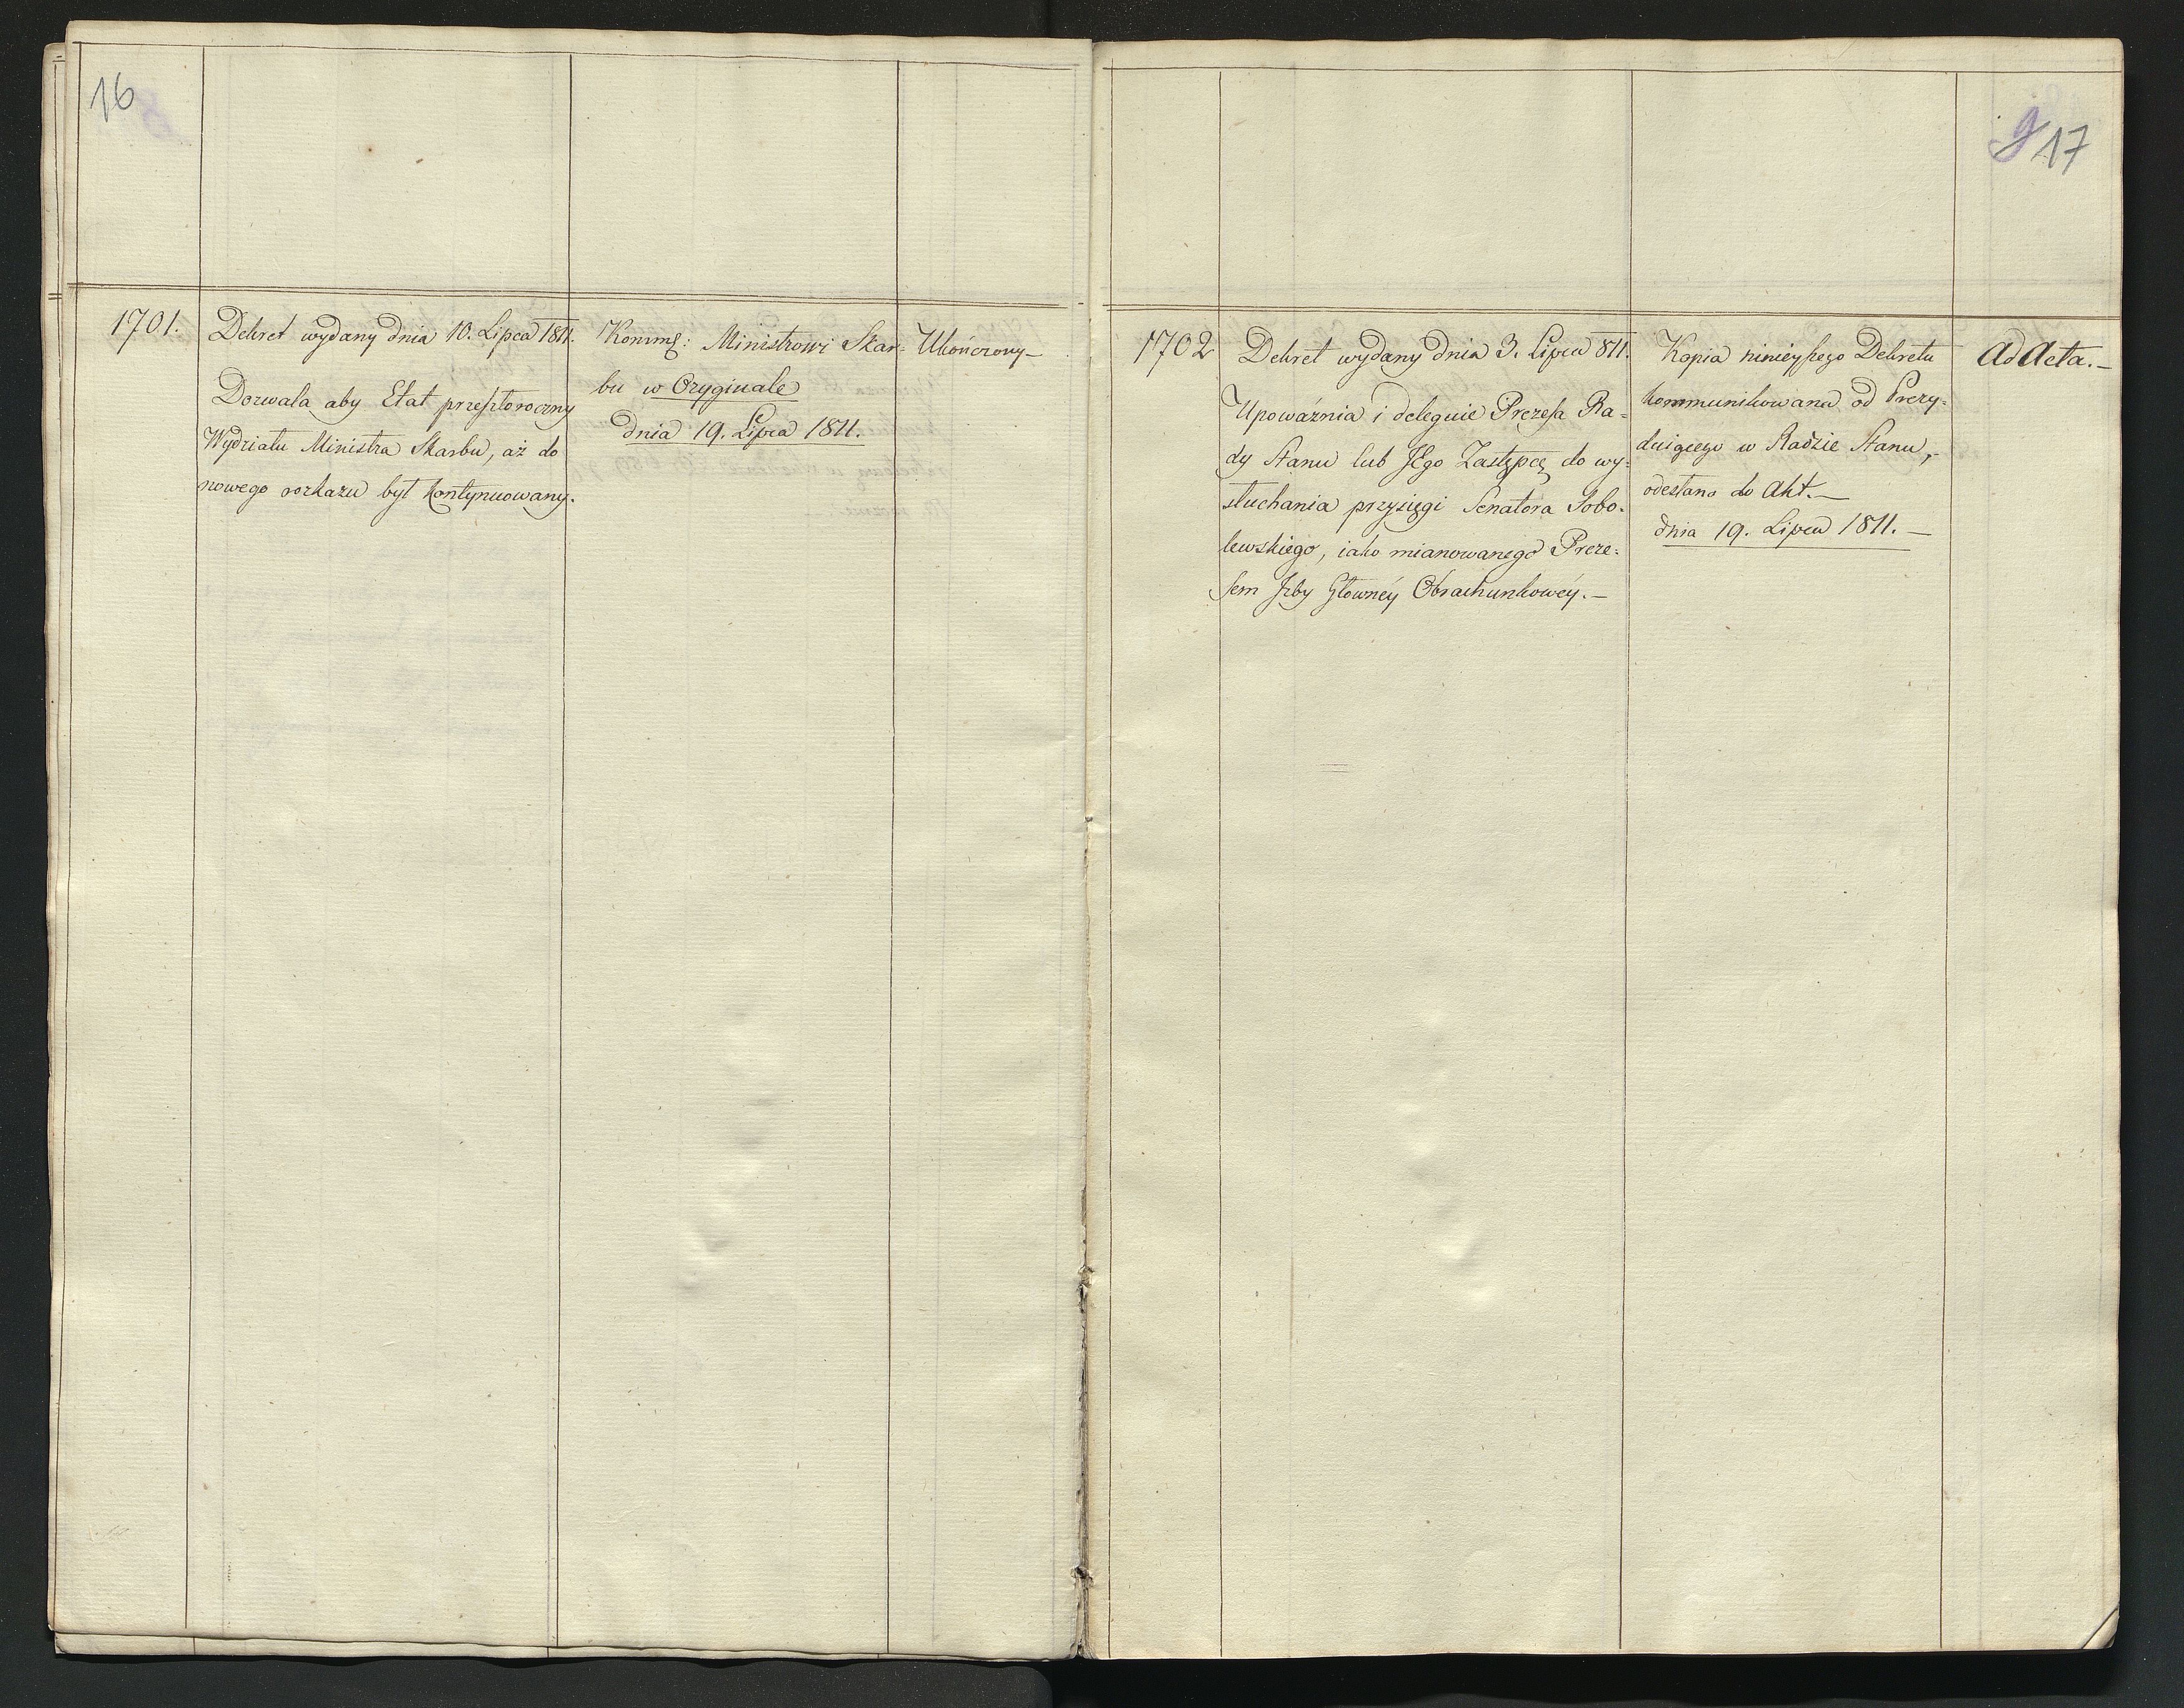 16
1701.
Dekret wydany dnia 10. Lipca 1811.
Dozwala aby Etat przeszłoroczny
Wydziału Ministra Skarbu, aż do
nowego rozkazu był kontynuowany.
Komms: Ministrowi Skar-
bu w Oryginale
dnia 19. Lipca 1811.
Ukończony –
9 17
1702
Dekret wydany dnia 3. Lipca 811.
Upoważnia i deleguie Prezesa Ra-
dy Stanu lub Jego Zastępcę do wy-
słuchania przysięgi Senatora Sobo-
lewskiego, iako mianowanego Preze-
sem Izby Głównéy Obrachunkowéy. –
Kopia ninieyszego Dekretu
kommunikowana od Prezy-
duiącego w Radzie Stanu, –
odesłano do Akt. –
dnia 19. Lipca 1811. –
Ad Acta. –